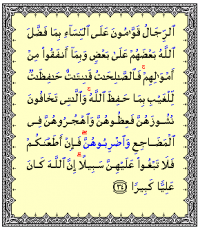 ٱلرِّجَالُ قَوَّٰمُونَ عَلَى ٱلنِّسَآءِ بِمَا فَضَّلَ
ٱللَّهُ بَعْضَهُمْ عَلَىٰ بَعْضٍ وَبِمَآ أَنفَقُوا۟ مِنْ
أَمْوَٰلِهِمْ ۚ فَٱلصَّٰلِحَٰتُ قَٰنِتَٰتٌ حَٰفِظَٰتٌ
لِّلْغَيْبِ بِمَا حَفِظَ ٱللَّهُ ۚ وَٱلَّٰتِى تَخَافُونَ
نُشُوزَهُنَّ فَعِظُوهُنَّ وَٱهْجُرُوهُنَّ فِى
ٱلْمَضَاجِعِ وَٱضْرِبُوهُنَّ ۖ فَإِنْ أَطَعْنَكُمْ
فَلَا تَبْغُوا۟ عَلَيْهِنَّ سَبِيلًا ۗ إِنَّ ٱللَّهَ كَانَ
عَلِيًّا كَبِيرًا ٣٤